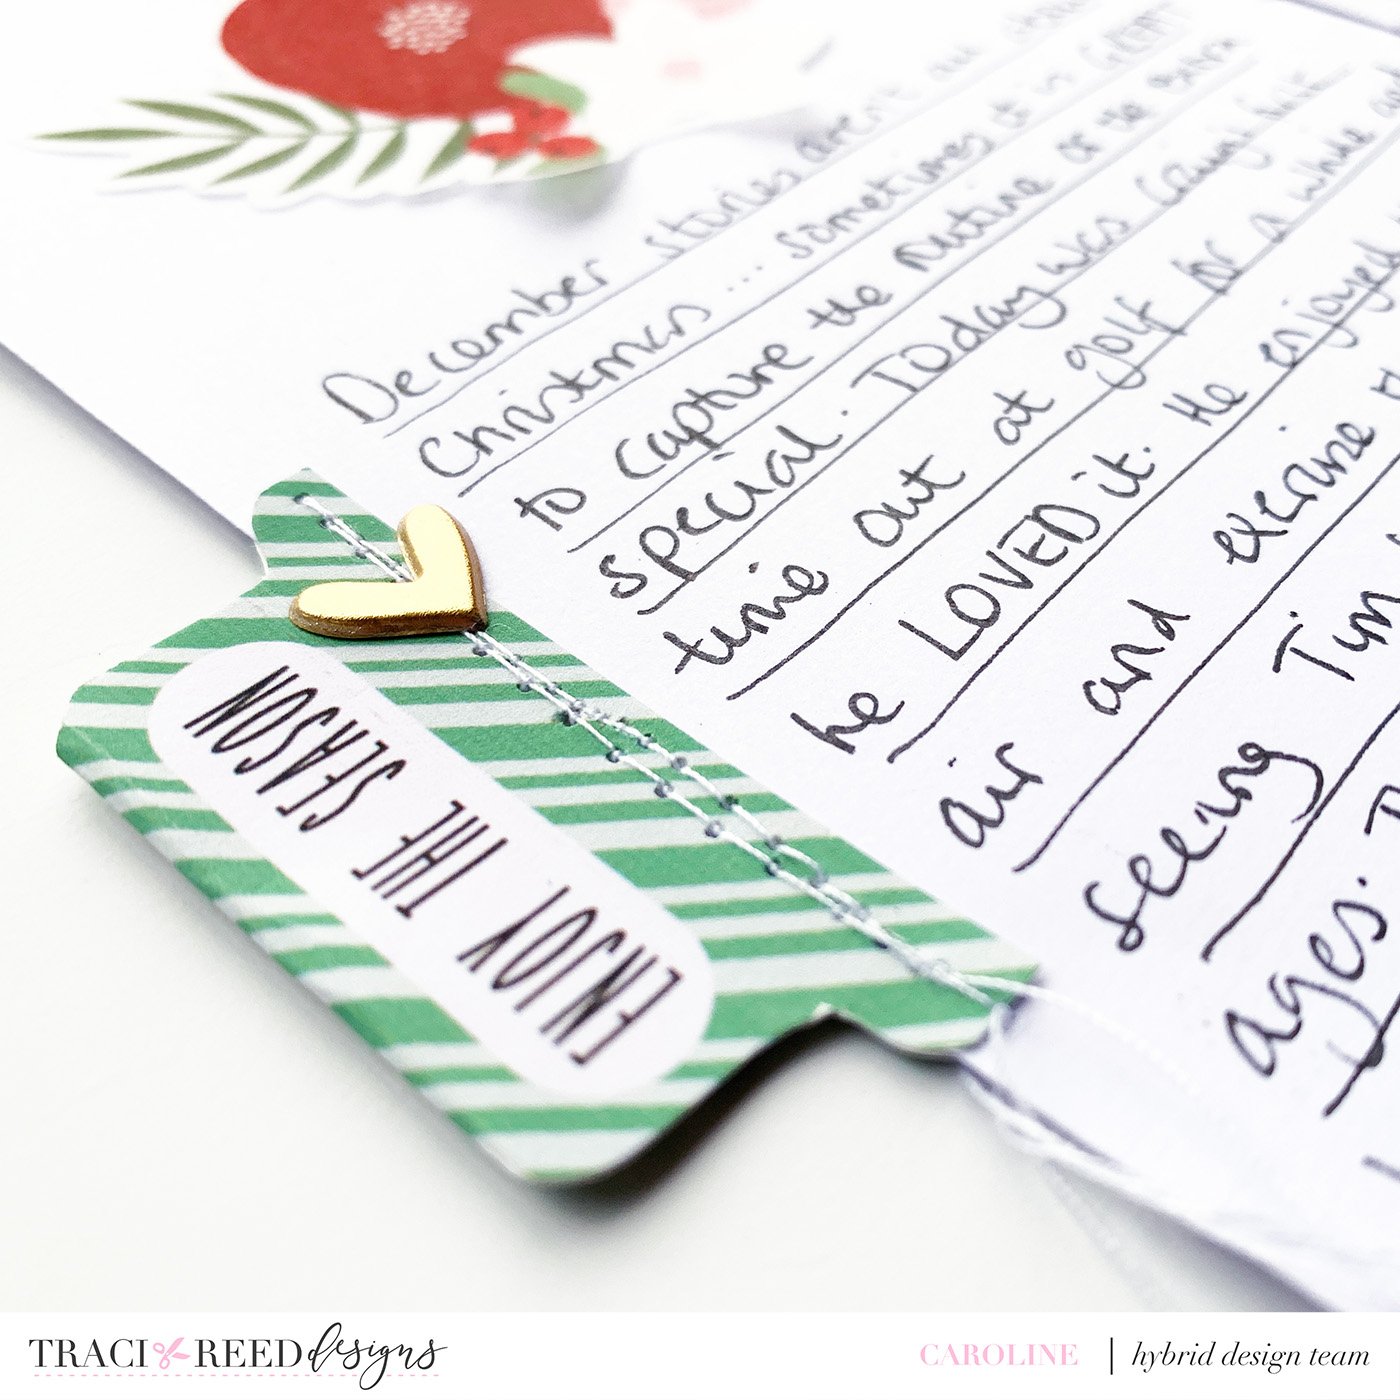 December stories aren't all about
Christmas ... sometimes it is GREAT
to capture the routine of the extra
special. Today was Caught
time out at golf for a while and
he LOVED it. He enjoyed
air and exercise
seeing Tim
ages.
ENJOY THE SEASON
TRACI REED designs
CAROLINE | hybrid design team